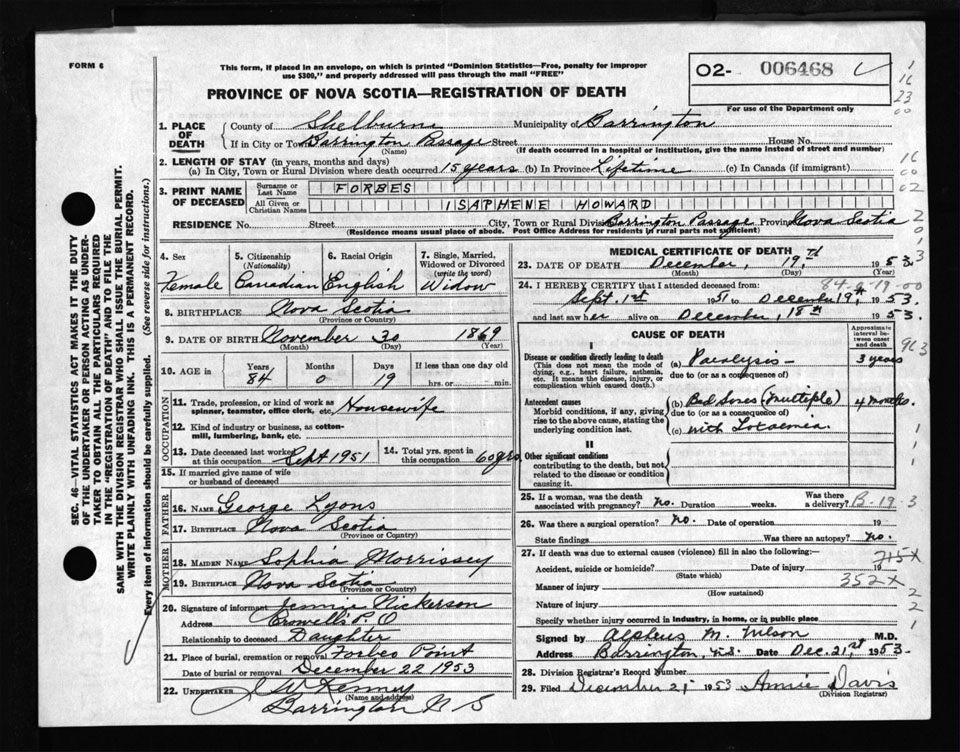 FORM 6
This form, if placed in an envelope, on which is printed "Dominion Statistics—Free, penalty for improper
use $300," and properly addressed will pass through the mail "FREE"
O2- 006468
For use of the Department only
PROVINCE OF NOVA SCOTIA—REGISTRATION OF DEATH
1. PLACE OF DEATH County of Shelburne Municipality of Barrington
If in City or Town Barrington Passage Street House No.
(Name) (If death occurred in a hospital or institution, give the name instead of street and number)
2. LENGTH OF STAY (in years, months and days)
(a) In City, Town or Rural Division where death occurred 15 years (b) In Province Lifetime (c) In Canada (if immigrant)
3. PRINT NAME OF DECEASED Surname or Last Name FORBES
All Given or Christian Names ISAPHENE HOWARD
RESIDENCE No. Street City, Town or Rural Division Barrington Passage Province Nova Scotia
(Residence means usual place of abode. Post Office Address for residents of rural parts not sufficient)
4. Sex Female
5. Citizenship (Nationality) Canadian
6. Racial Origin English
7. Single, Married, Widowed or Divorced (write the word) Widow
8. BIRTHPLACE Nova Scotia
(Province or Country)
9. DATE OF BIRTH November 30 1869
(Month) (Day) (Year)
10. AGE in Years 84 Months 0 Days 19 If less than one day hrs. or min.
OCCUPATION
11. Trade, profession, or kind of work as
spinner, teamster, office clerk, etc. Housewife
12. Kind of industry or business, as cotton-
mill, lumbering, bank, etc.
13. Date deceased last worked at this occupation Sept 1951
14. Total yrs. spent in this occupation 60 yrs
15. If married give name of wife
or husband of deceased
FATHER
16. NAME George Lyons
17. BIRTHPLACE Nova Scotia
(Province or Country)
MOTHER
18. MAIDEN NAME Sophia Morrissey
19. BIRTHPLACE Nova Scotia
(Province or Country)
20. Signature of informant Jennie Nickerson
Address Crowells P.O
Relationship to deceased Daughter
21. Place of burial, cremation or removal Forbes Point
Date of burial or removal December 22 1953
22. UNDERTAKER Kenney
(Name and address)
Barrington N S
MEDICAL CERTIFICATE OF DEATH
23. DATE OF DEATH December, 19, Th 1953
(Month) (Day)
84-0-19-00
24. I HEREBY CERTIFY that I attended deceased from:
Sept. 1st 1951 to December 19th, 1953.
and last saw her alive on December, 18th 1953.
CAUSE OF DEATH
Approximate interval between onset and death
I
Disease or condition directly leading to death
(This does not mean the mode of dying, e.g., heart failure, asthenia, etc. It means the disease, injury, or complication which caused death.)
(a) Paralysis — 3 years
due to (or as a consequence of)
Antecedent causes
Morbid conditions, if any, giving rise to the above cause, stating the underlying condition last.
(b) Bed Sores (multiple) 4 months.
due to (or as a consequence of)
(c) with
II
Other significant conditions
contributing to the death, but not related to the disease or condition causing it.
25. If a woman, was the death associated with pregnancy? no. Duration weeks. Was there a delivery? B-19-3
26. Was there a surgical operation? no. Date of operation 19
State findings Was there an autopsy? no.
27. If death was due to external causes (violence) fill in also the following:— 715X
Accident, suicide or homicide? Date of injury 19
(State which) 352X
Manner of injury
(How sustained)
Nature of injury
Specify whether injury occurred in industry, in home, or in public place
Signed by Alpheus M. Wilson M.D.
Address Barrington, N.S. Date Dec. 21st 1953.
28. Division Registrar's Record Number
29. Filed December 21 1953 Annie Davis
(Division Registrar)
SEC. 46—VITAL STATISTICS ACT MAKES IT THE DUTY
OF THE UNDERTAKER OR PERSON ACTING AS UNDER-
TAKER TO OBTAIN ALL THE PARTICULARS REQUIRED
IN THE "REGISTRATION OF DEATH" AND TO FILE THE
SAME WITH THE DIVISION REGISTRAR WHO SHALL ISSUE THE BURIAL PERMIT.
WRITE PLAINLY WITH UNFADING INK. THIS IS A PERMANENT RECORD.
Every item of information should be carefully supplied. (See reverse side for instructions.)
1
16
23
00
16
00
02
2
0
1
3
963
1
1
1
2
2
1